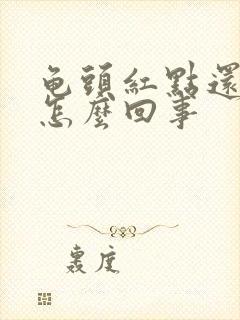 龟頭紅點還
怎麼回事
裹度